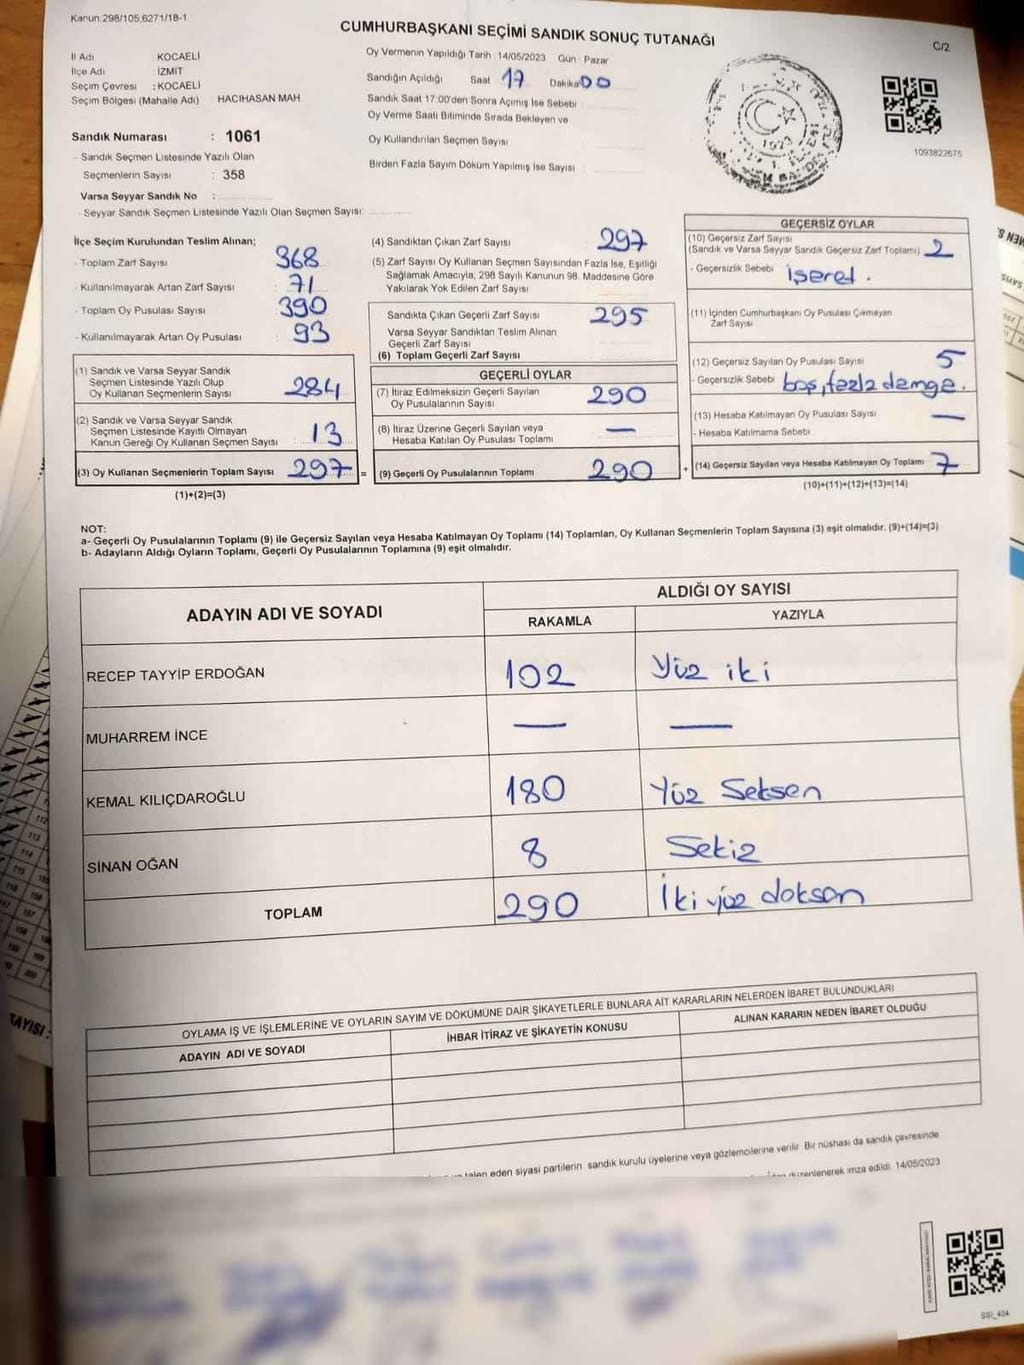 Kanun:298/105,6271/18-1
CUMHURBAŞKANI SEÇİMİ SANDIK SONUÇ TUTANAĞI
C/2
İl Adı KOCAELİ
İlçe Adı İZMİT
Seçim Çevresi :KOCAELİ
Seçim Bölgesi (Mahalle Adı) : HACIHASAN MAH
Sandık Numarası : 1061
- Sandık Seçmen Listesinde Yazılı Olan
Seçmenlerin Sayısı : 358
Varsa Seyyar Sandık No :
- Seyyar Sandık Seçmen Listesinde Yazılı Olan Seçmen Sayısı:
Oy Vermenin Yapıldığı Tarih 14/05/2023 Gün Pazar
Sandığın Açıldığı Saat 17 Dakika 00
Sandık Saat 17:00'den Sonra Açımış İse Sebebi
Oy Verme Saati Bitiminde Sırada Bekleyen ve
Oy Kullandırılan Seçmen Sayısı
Birden Fazla Sayım Döküm Yapılmış İse Sayısı
1923
1093822675
İlçe Seçim Kurulundan Teslim Alınan;
- Toplam Zarf Sayısı : 368
- Kullanılmayarak Artan Zarf Sayısı : 71
- Toplam Oy Pusulası Sayısı : 390
- Kullanılmayarak Artan Oy Pusulası : 93
(1) Sandık ve Varsa Seyyar Sandık
Seçmen Listesinde Yazılı Olup
Oy Kullanan Seçmenlerin Sayısı : 284
(2) Sandık ve Varsa Seyyar Sandık
Seçmen Listesinde Kayıtlı Olmayan
Kanun Gereği Oy Kullanan Seçmen Sayısı : 13
(3) Oy Kullanan Seçmenlerin Toplam Sayısı 297 =
(1)+(2)=(3)
(4) Sandıktan Çıkan Zarf Sayısı 297
(5) Zarf Sayısı Oy Kullanan Seçmen Sayısından Fazla İse, Eşitliği
Sağlamak Amacıyla, 298 Sayılı Kanunun 98. Maddesine Göre
Yakılarak Yok Edilen Zarf Sayısı
Sandıkta Çıkan Geçerli Zarf Sayısı 295
Varsa Seyyar Sandıktan Teslim Alınan
Geçerli Zarf Sayısı
(6) Toplam Geçerli Zarf Sayısı
GEÇERLİ OYLAR
(7) İtiraz Edilmeksizin Geçerli Sayılan
Oy Pusulalarının Sayısı 290
(8) İtiraz Üzerine Geçerli Sayılan veya
Hesaba Katılan Oy Pusulası Toplamı —
(9) Geçerli Oy Pusulalarının Toplamı 290 +
GEÇERSİZ OYLAR
(10) Geçersiz Zarf Sayısı
(Sandık ve Varsa Seyyar Sandık Geçersiz Zarf Toplamı) 2
- Geçersizlik Sebebi işaret.
(11) İçinden Cumhurbaşkanı Oy Pusulası Çıkmayan
Zarf Sayısı
(12) Geçersiz Sayılan Oy Pusulası Sayısı 5
- Geçersizlik Sebebi boş, fazla damga.
(13) Hesaba Katılmayan Oy Pusulası Sayısı —
- Hesaba Katılmama Sebebi
(14) Geçersiz Sayılan veya Hesaba Katılmayan Oy Toplamı 7
(10)+(11)+(12)+(13)=(14)
NOT:
a- Geçerli Oy Pusulalarının Toplamı (9) ile Geçersiz Sayılan veya Hesaba Katılmayan Oy Toplamı (14) Toplamları, Oy Kullanan Seçmenlerin Toplam Sayısına (3) eşit olmalıdır. (9)+(14)=(3)
b- Adayların Aldığı Oyların Toplamı, Geçerli Oy Pusulalarının Toplamına (9) eşit olmalıdır.
ADAYIN ADI VE SOYADI ALDIĞI OY SAYISI
RAKAMLA YAZIYLA
RECEP TAYYİP ERDOĞAN 102 Yüz iki
MUHARREM İNCE — —
KEMAL KILIÇDAROĞLU 180 Yüz Seksen
SİNAN OĞAN 8 Sekiz
TOPLAM 290 İki yüz doksan
OYLAMA İŞ VE İŞLEMLERİNE VE OYLARIN SAYIM VE DÖKÜMÜNE DAİR ŞİKAYETLERLE BUNLARA AİT KARARLARIN NELERDEN İBARET BULUNDUKLARI
ADAYIN ADI VE SOYADI İHBAR İTİRAZ VE ŞİKAYETİN KONUSU ALINAN KARARIN NEDEN İBARET OLDUĞU
talep eden siyasi partilerin sandık kurulu üyelerine veya gözlemcilerine verilir. Bir nüshası da sandık çevresinde
düzenlenerek imza edildi. 14/05/2023
SSI_404